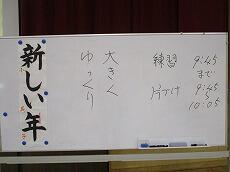 新しい年
大きく
ゆっくり
練習 9:45
まで
片づけ 9:45
〜
10:05